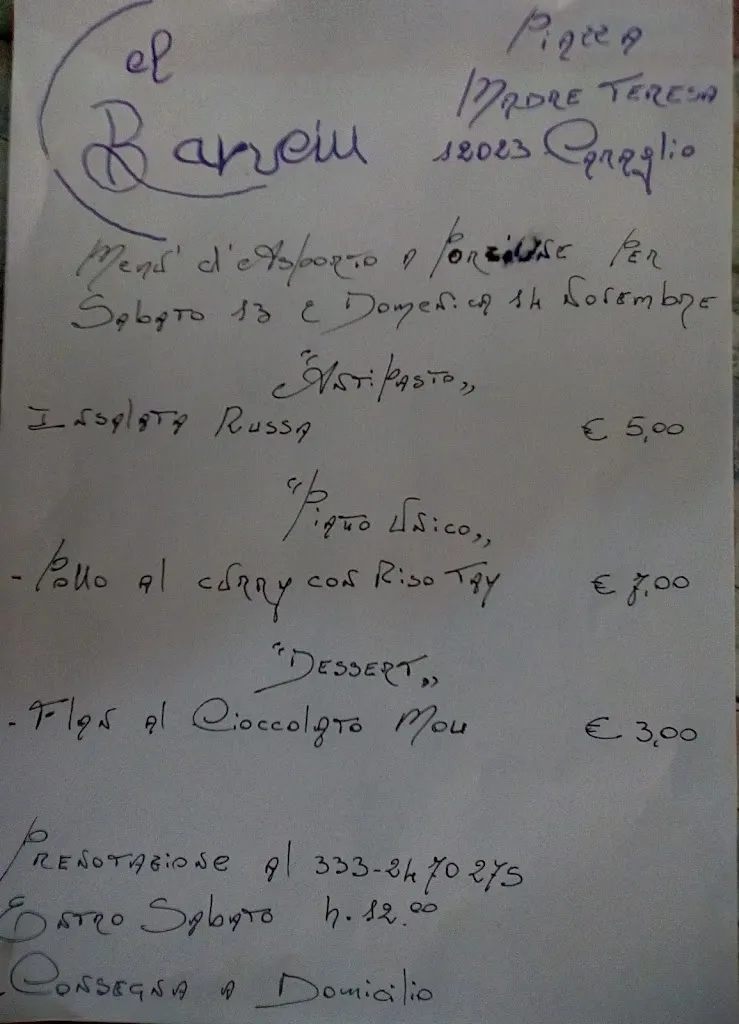 el
Barveiu
Piazza
Madre Teresa
12023 Caraglio
Menù d'Asporto a Porzione Per
Sabato 13 e Domenica 14 Novembre
"Antipasto"
Insalata Russa € 5,00
"Piatto Unico"
- Pollo al curry con Riso Tay € 7,00
"Dessert"
- Flan al Cioccolato Mou € 3,00
Prenotazione al 333-2470275
Entro Sabato h. 12.00
- Consegna a Domicilio